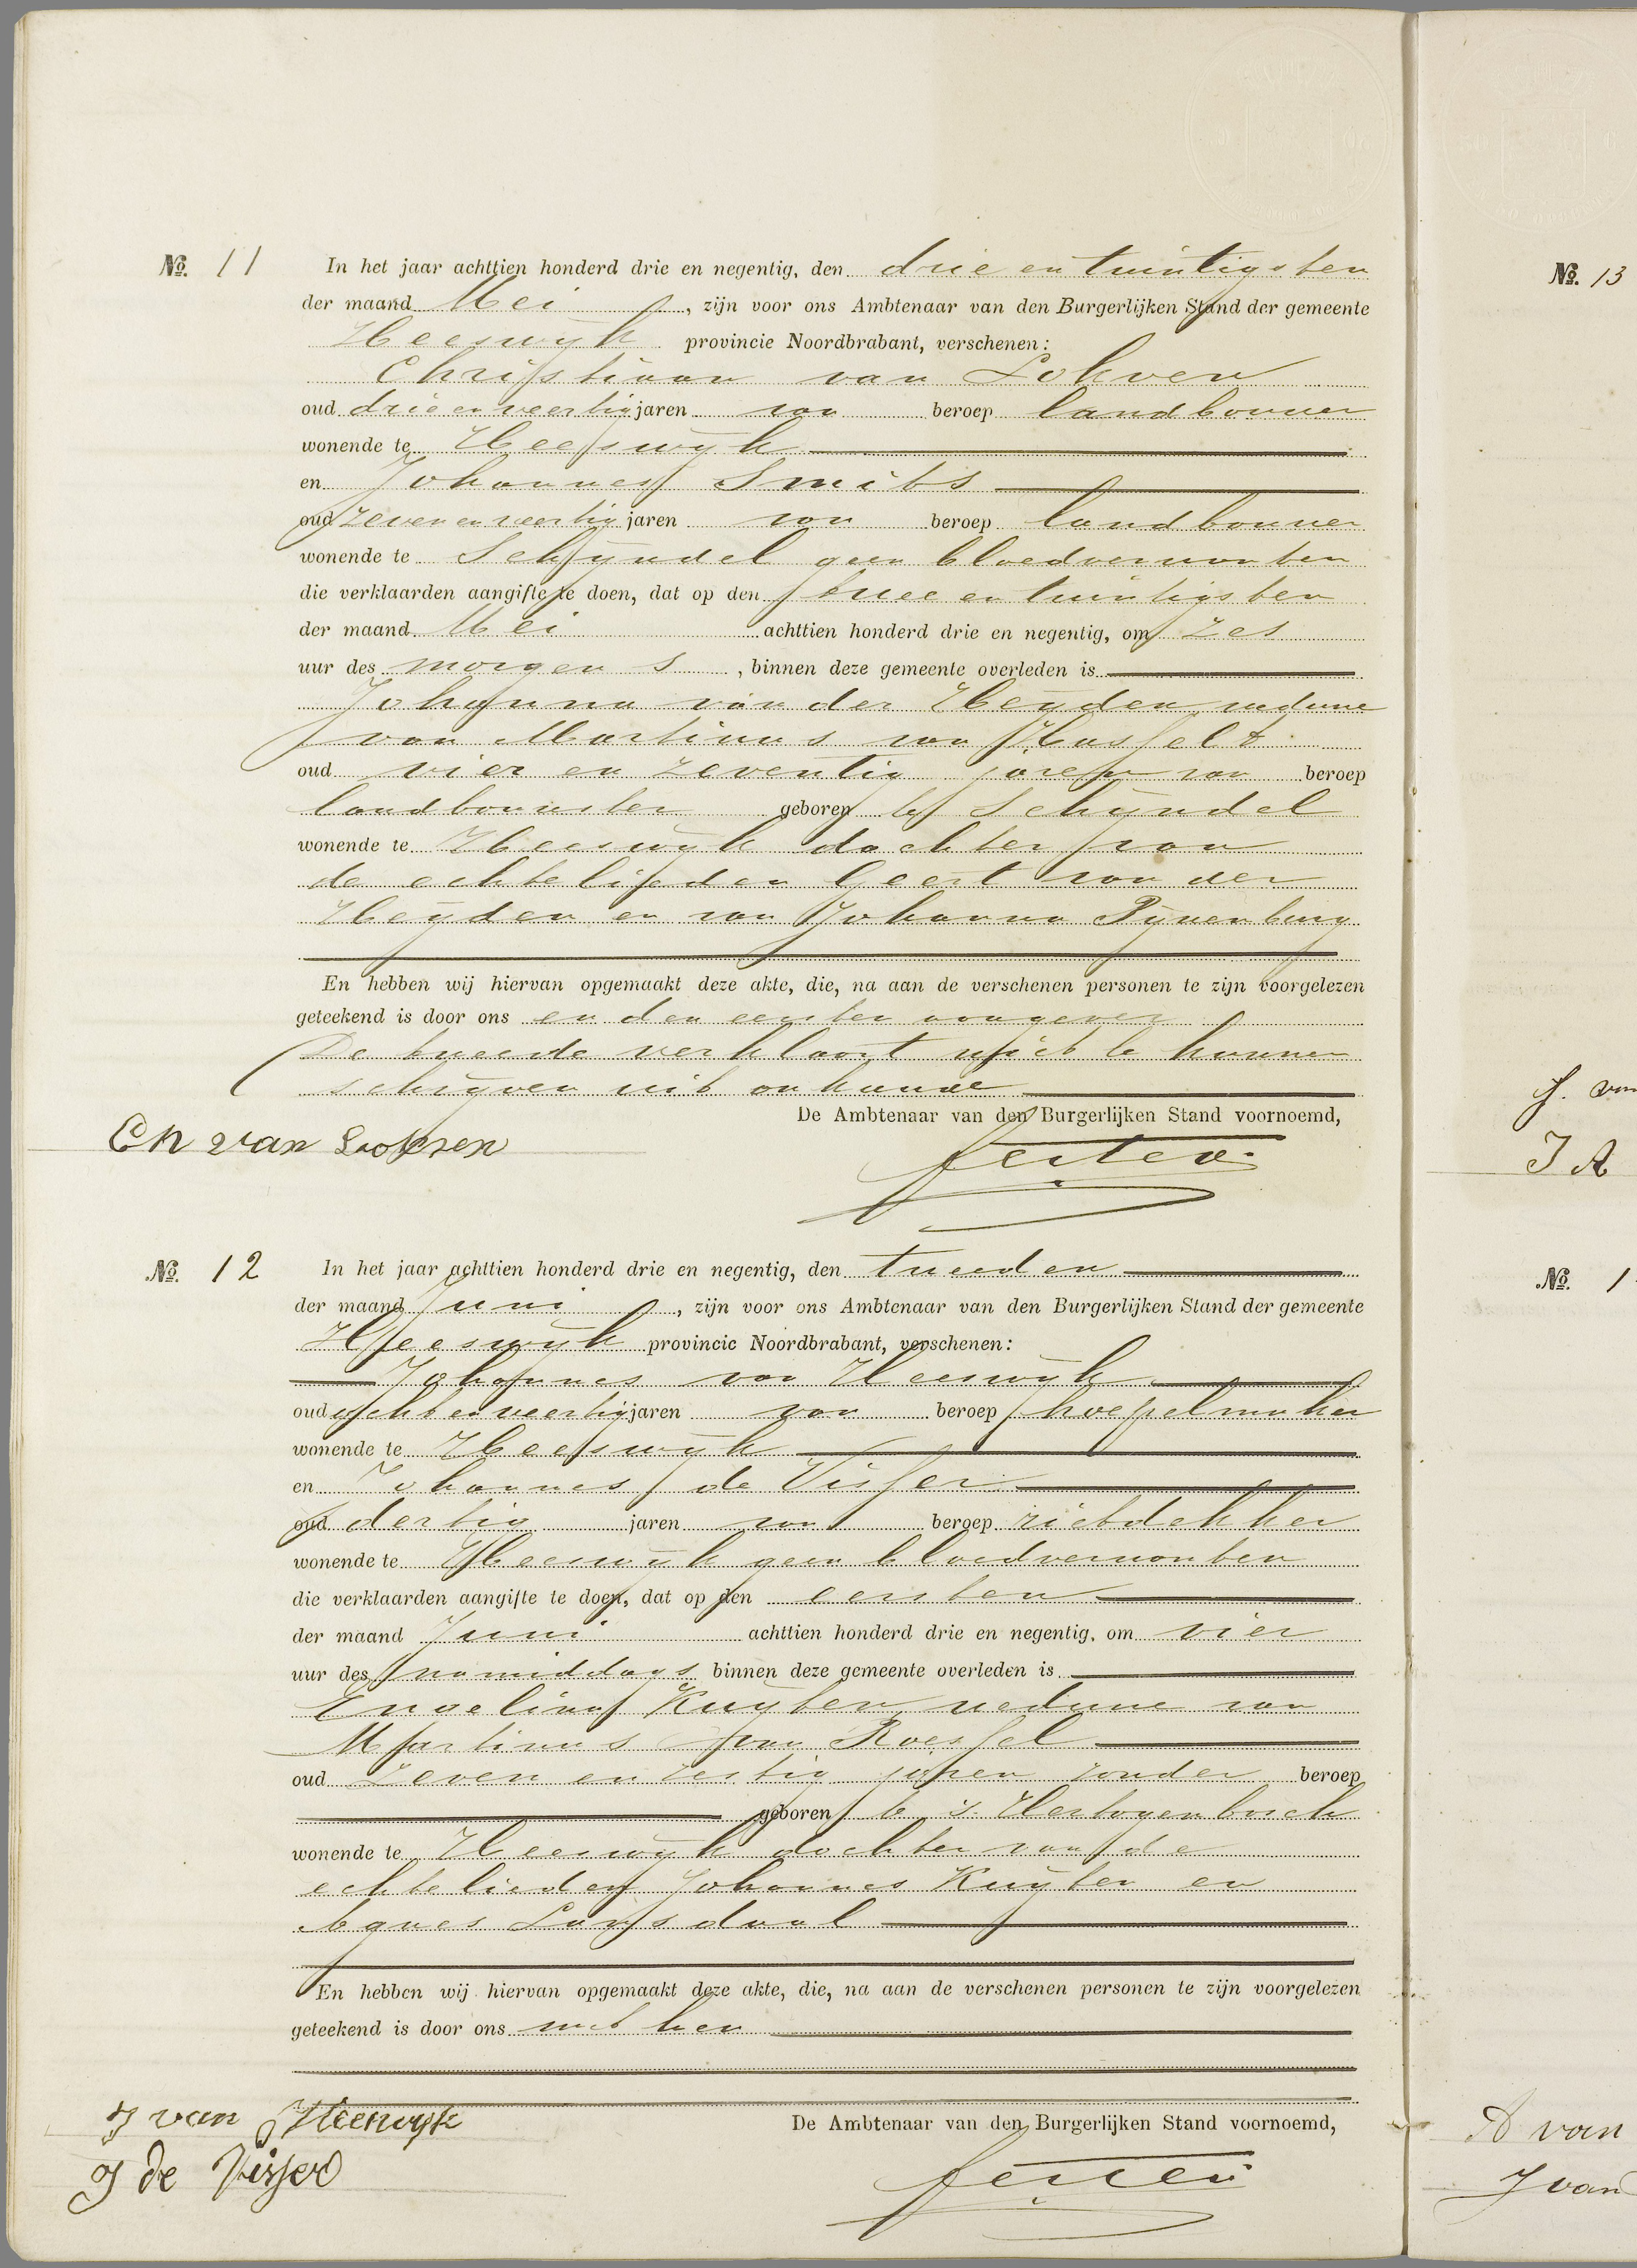 No. 11 In het jaar achttien honderd drie en negentig, den drie en twintigsten
der maand Mei, zijn voor ons Ambtenaar van den Burgerlijken Stand der gemeente
Heeswijk provincie Noordbrabant, verschenen:
Christiaan van Lokven
oud drie en veertig jaren van beroep landbouwer
wonende te Heeswijk
en Johannes Smits
oud zeven en veertig jaren van beroep landbouwer
wonende te Schijndel geen bloedverwanten
die verklaarden aangifte te doen, dat op den twee en twintigsten
der maand Mei achttien honderd drie en negentig, om zes
uur des morgens, binnen deze gemeente overleden is
Johanna van der Heijden weduwe
van Martinus van Hasselt
oud vier en zeventig jaren van beroep
landbouwster geboren te Schijndel
wonende te Heeswijk dochter van
de echtelieden Geert van der
Heijden en van Johanna Pijnenburg
En hebben wij hiervan opgemaakt deze akte, die, na aan de verschenen personen te zijn voorgelezen
geteekend is door ons en den eersten aangever
De tweede verklaart niet te kunnen
schrijven uit onkunde
De Ambtenaar van den Burgerlijken Stand voornoemd,
Ch van Lokven
No. 12 In het jaar achttien honderd drie en negentig, den tweeden
der maand Juni, zijn voor ons Ambtenaar van den Burgerlijken Stand der gemeente
Heeswijk provincie Noordbrabant, verschenen:
Johannes van Heeswijk
oud acht en veertig jaren van beroep hoepelmaker
wonende te Heeswijk
en Johannes de Visser
oud dertig jaren van beroep rietdekker
wonende te Heeswijk geen bloedverwanten
die verklaarden aangifte te doen, dat op den eersten
der maand Juni achttien honderd drie en negentig, om vier
uur des namiddags binnen deze gemeente overleden is
Engelina Kuijten weduwe van
Martinus van Roessel
oud zeven en zestig jaren zonder beroep
geboren te 's Hertogenbosch
wonende te Heeswijk dochter van de
echtelieden Johannes Kuijten en
Agnes
En hebben wij hiervan opgemaakt deze akte, die, na aan de verschenen personen te zijn voorgelezen
geteekend is door ons met hen
De Ambtenaar van den Burgerlijken Stand voornoemd,
J van Heeswijk
J de Visser
No. 13
J. van
J A
No. 1
A van
J van